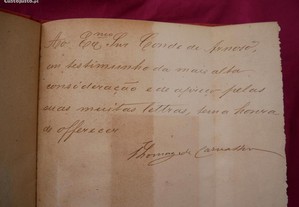 Ao Ex.mo Snr Conde de Arnoso,
em testemunho da mais alta
consideração e de apreço pelas
suas muitas lettras, tem a honra
de offerecer
Thomaz de Carvalho